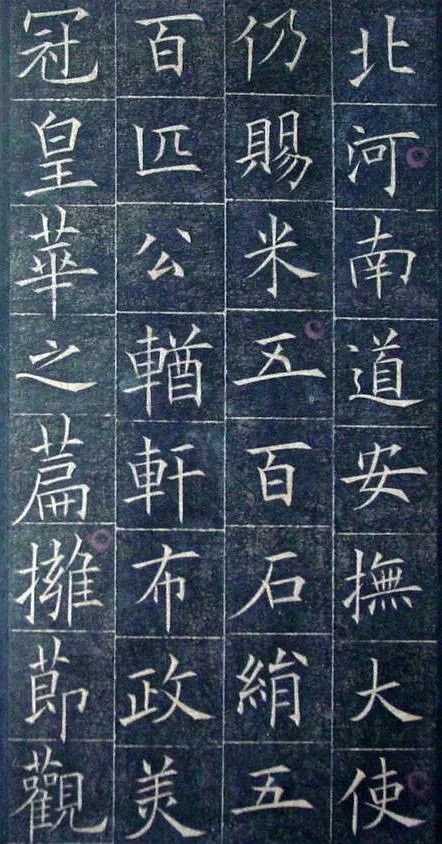 北河南道安撫大使
仍賜米五百石絹五
百匹公輶軒布政美
冠皇華之篇擁節觀